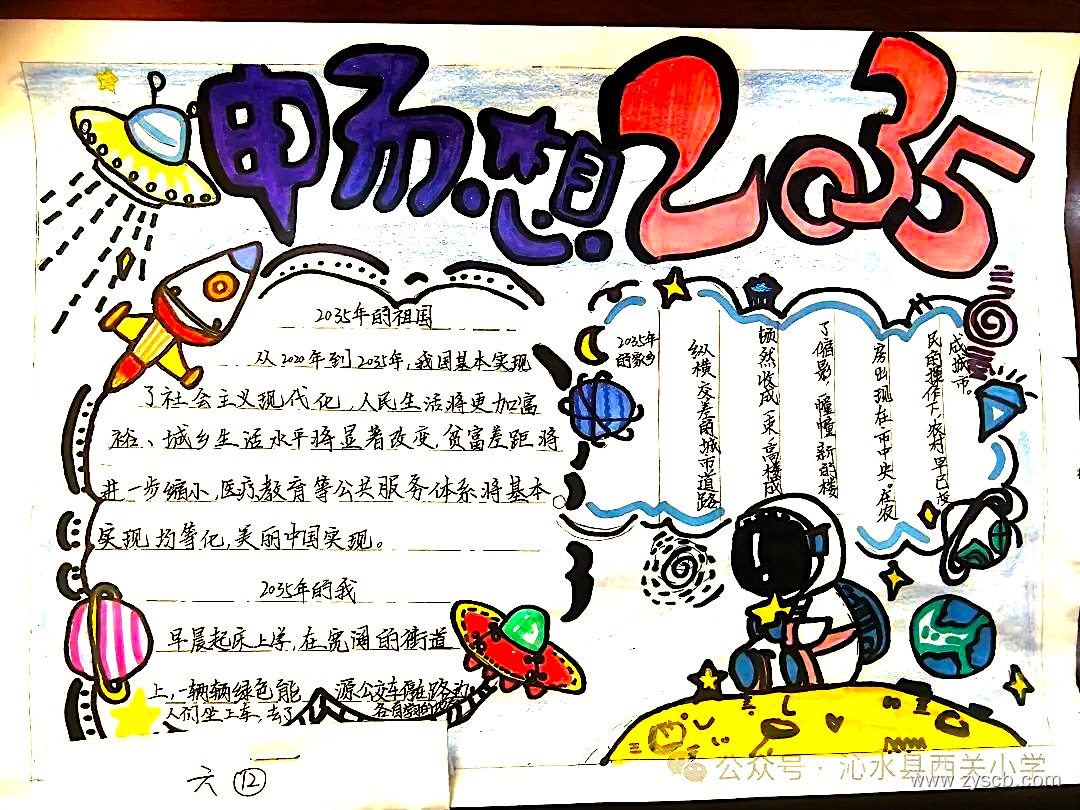 畅想2035
2035年的祖国
从2020年到2035年,我国基本实现
了社会主义现代化,人民生活将更加富
裕、城乡生活水平将显著改变,贫富差距将
进一步缩小,医疗教育等公共服务体系将基本
实现均等化,美丽中国实现。
2035年的我
早晨起床上学,在宽阔的街道
上,一辆辆绿色能源公交车停在路边
人们坐上车,去了各自
2035年
的家乡
纵横交差的城市道路
顿然收成一束,高楼成
了缩影,幢幢新的楼
房出现在市中央。在农
民的操作下,农村早已变
成城市。
六 12
公众号·沁水县西关小学
www.zyscb.com